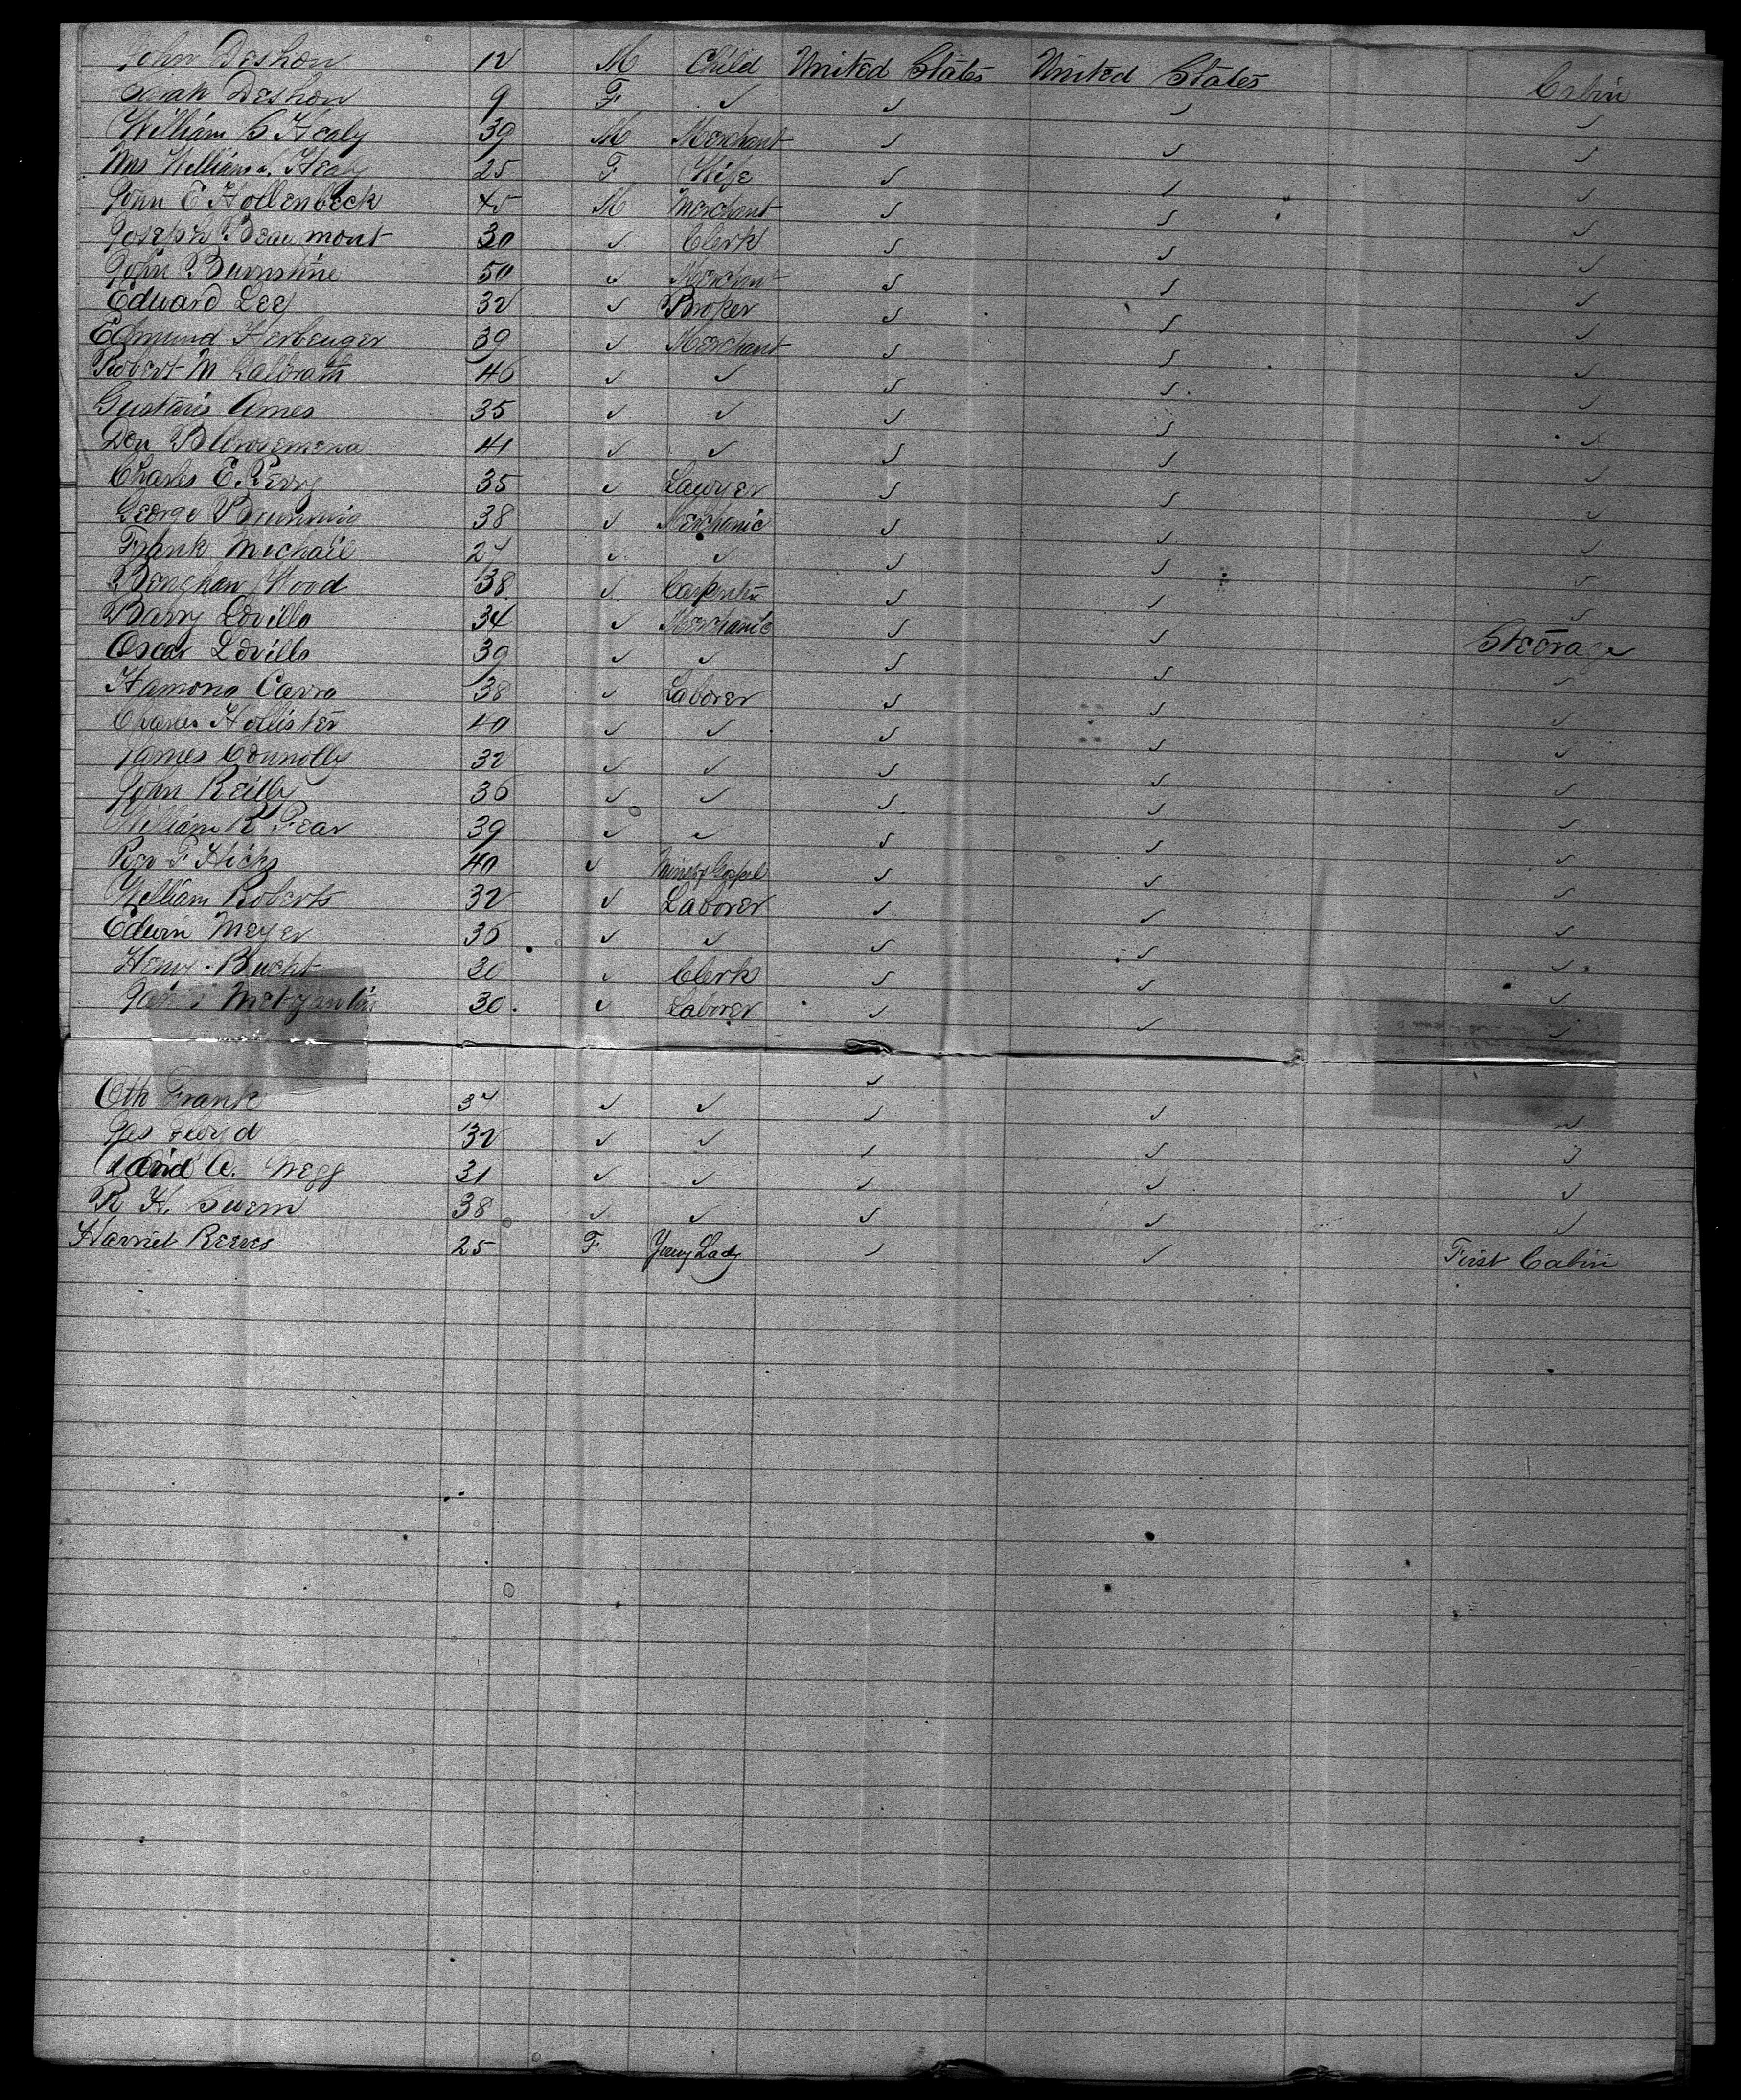 John Deshon 12 M Child United States United States Cabin
Deshon 9 F ✓ ✓ ✓ ✓
William S Healy 39 M Merchant ✓ ✓ ✓
Mrs William S. Healy 25 F Wife ✓ ✓ ✓
John E Hollenbeck 45 M Merchant ✓ ✓ ✓
Joseph Beaumont 30 ✓ Clerk ✓ ✓ ✓
John Burnstine 50 ✓ Merchant ✓ ✓ ✓
Edward Lee 32 ✓ Broker ✓ ✓ ✓
Edmund Herbenger 39 ✓ Merchant ✓ ✓ ✓
Robert M Galbrath 46 ✓ ✓ ✓ ✓ ✓
Gustavis Ames 35 ✓ ✓ ✓ ✓ ✓
Don B Arosemena 41 ✓ ✓ ✓ ✓ ✓
Charles E. Perry 35 ✓ Lawyer ✓ ✓ ✓
George 38 ✓ Mechanic ✓ ✓ ✓
Frank Mechail 27 ✓ ✓ ✓ ✓ ✓
Benghan Wood 38 ✓ Carpenter ✓ ✓ ✓
Barry Lovills 34 ✓ Mechanic ✓ ✓ Steerage
Oscar Lovills 39 ✓ ✓ ✓ ✓ ✓
Hamona Carra 38 ✓ Laborer ✓ ✓ ✓
Charles Hollister 40 ✓ ✓ ✓ ✓ ✓
James Connolly 32 ✓ ✓ ✓ ✓ ✓
John Reilly 36 ✓ ✓ ✓ ✓ ✓
William R Fear 39 ✓ ✓ ✓ ✓ ✓
Rev F Hicks 40 ✓ Minis of Gospel ✓ ✓ ✓
William Roberts 32 ✓ Laborer ✓ ✓ ✓
Edwin Meyer 36 ✓ ✓ ✓ ✓ ✓
Henry Bucht 30 ✓ Clerk ✓ ✓ ✓
30. ✓ Laborer ✓ ✓ ✓
Oth Frank 34 ✓ ✓ ✓ ✓ ✓
Jas Floyd 32 ✓ ✓ ✓ ✓ ✓
David A. 31 ✓ ✓ ✓ ✓ ✓
R H. Swem 38 ✓ ✓ ✓ ✓ ✓
Harriet Reeves 25 F Young Lady ✓ ✓ First Cabin